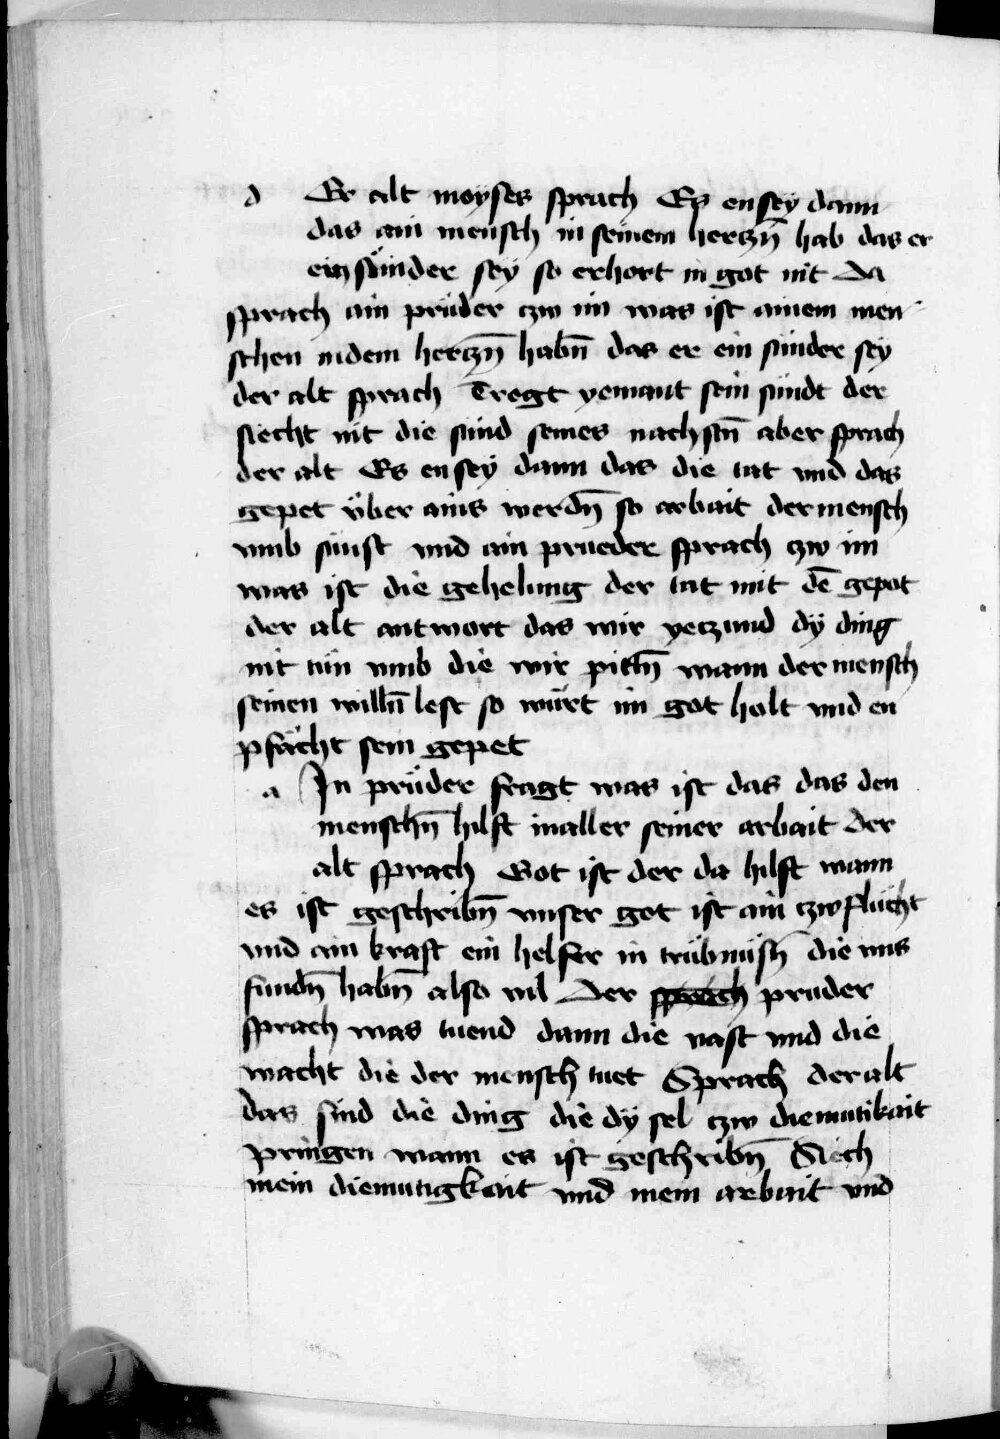 d Er alt moyses sprach Es en sey dann
das ain mensch in seinem hertzn̄ hab das er
ein sünder sey so erhort in got nit Da
sprach ain prüder czw im was ist ainem men
schen in dem hertzn̄ habn̄ das er ein sünder sey
der alt sprach Tregt yemant sein sündt der
siecht nit die sünd seines nachstn̄ aber sprach
der alt Es en sey dann das die tat vnd das
gepet v̈ber ains werdn̄ so arbait der mensch
vmb sünst vnd ain prueder sprach czw im
was ist die gehelung der tat mit dē gepot
der alt antwort das wir yeczund dÿ ding
nit tün vmb die wir pittn̄ wann der mensch
seinen willn̄ lest so würt im got holt vnd en
pfächt sein gepet
a In prüder fragt was ist das das den
menschn̄ hilft in aller seiner arbait Der
alt sprach Got ist der da hilft wann
es ist geschribn̄ vnser got ist ain czwflücht
vnd ain kraft ein helfer in trübnüsn̄ die vns
fundn̄ habn̄ also vil Der sprach pruder
sprach was tuend dann die vast vnd die
wacht die der mensch tuet Sprach der alt
das sind die ding die dÿ sel czw diemutikait
pringen wann es ist geschribn̄ Siech
mein diemutigkait vnd mein arbait vnd